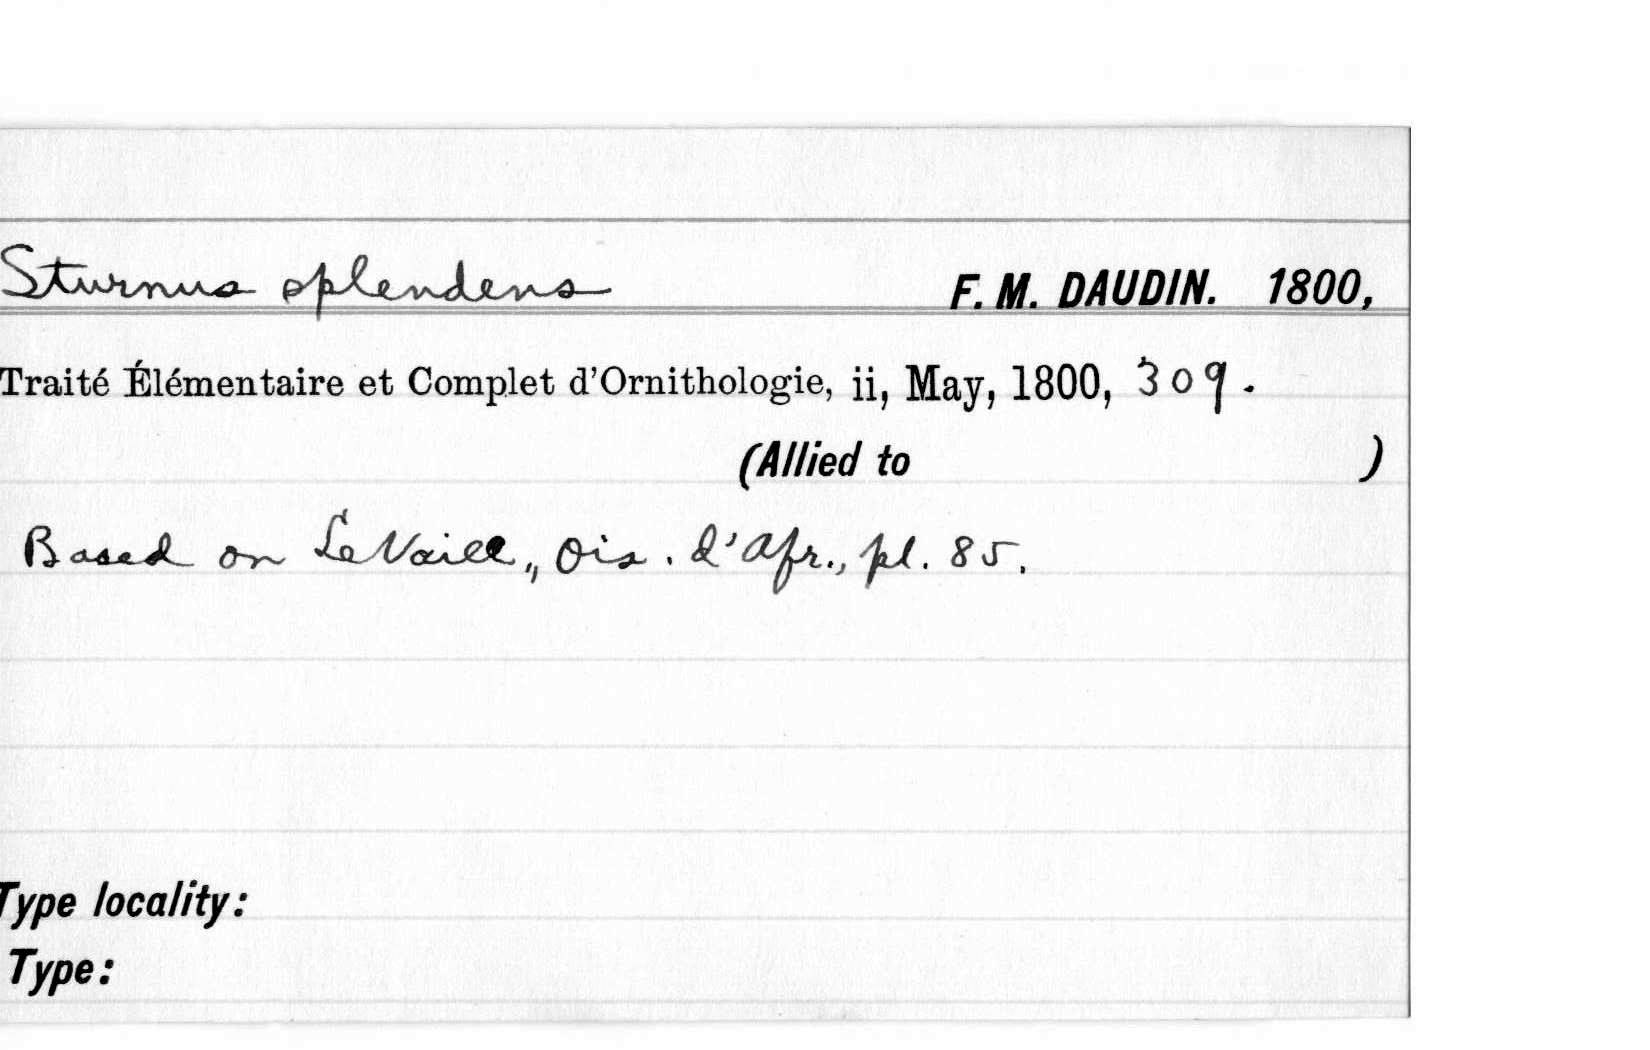 Sturnus splendens F. M. DAUDIN. 1800,
Traité Élémentaire et Complet d'Ornithologie, ii, May, 1800, 309.
(Allied to )
Based on LeVaill., Ois. d'Afr., pl. 85.
Type locality:
Type: